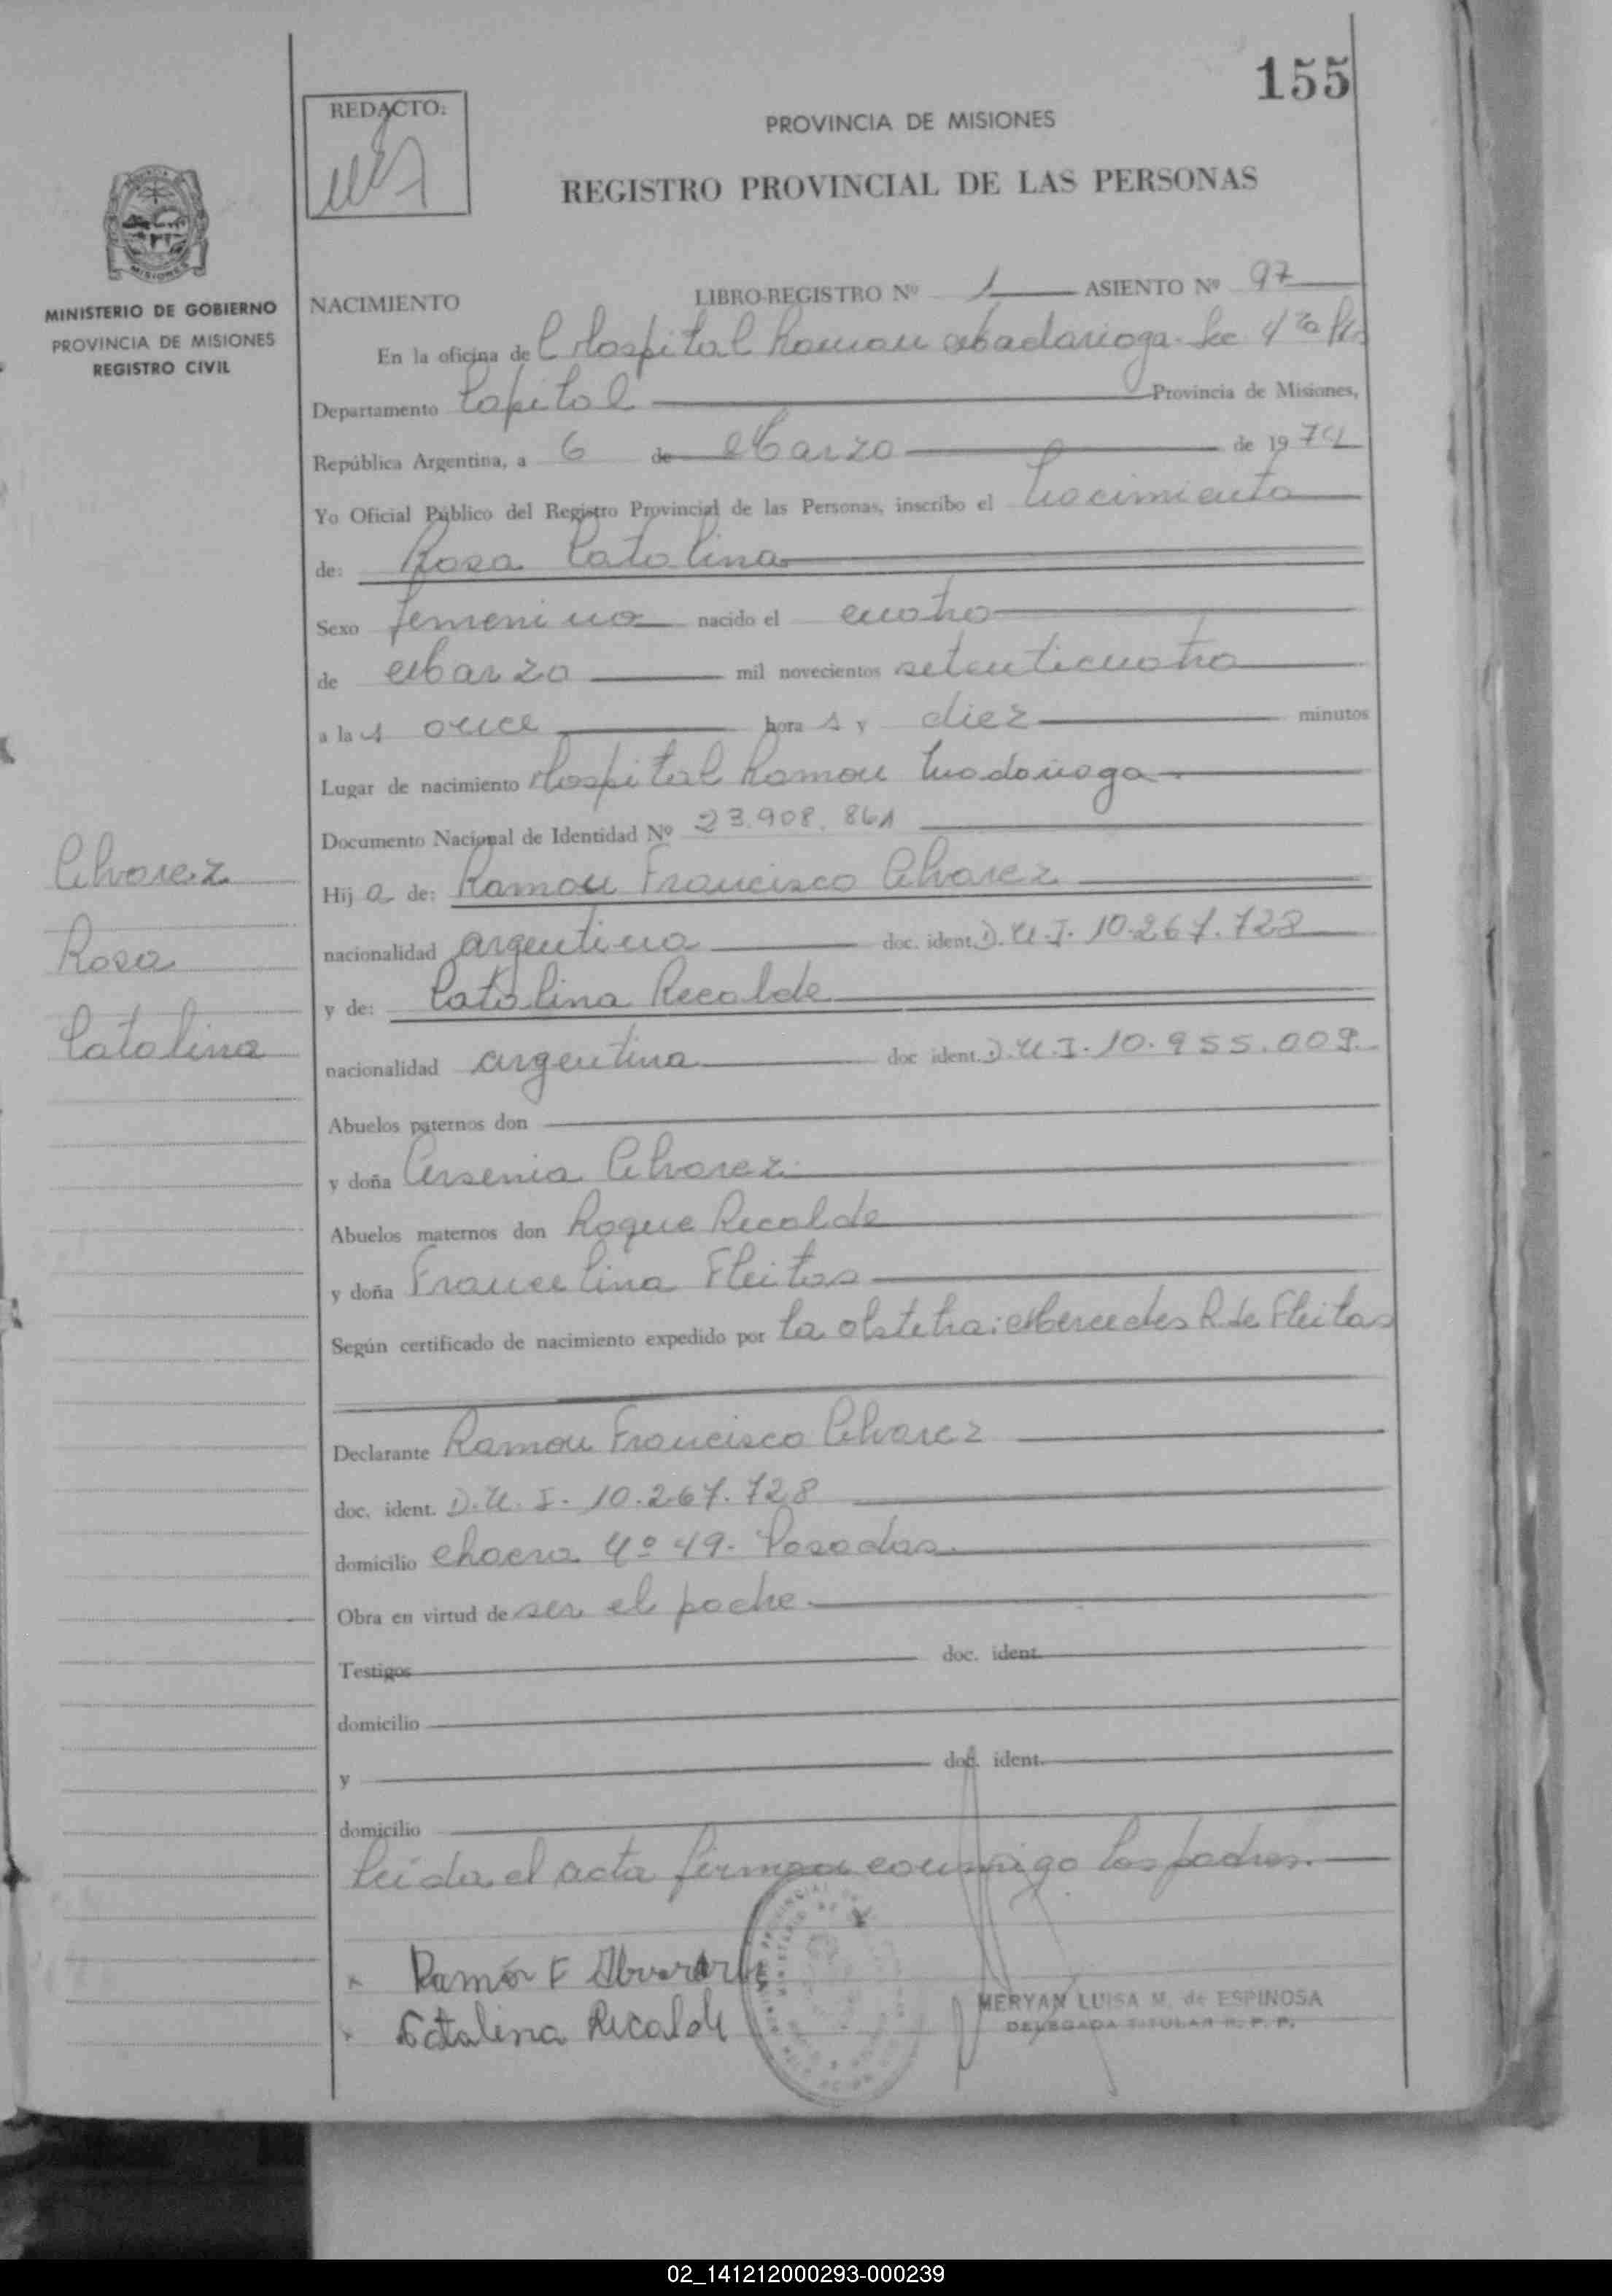 155
REDACTO:
PROVINCIA DE MISIONES
REGISTRO PROVINCIAL DE LAS PERSONAS
MISIONES
MINISTERIO DE GOBIERNO
PROVINCIA DE MISIONES
REGISTRO CIVIL
NACIMIENTO LIBRO-REGISTRO Nº 1 ASIENTO Nº 97
En la oficina del Hospital Ramon Madariaga. Sec. 4ta
Departamento Capital Provincia de Misiones,
República Argentina, a 6 de Marzo de 1974
Yo Oficial Público del Registro Provincial de las Personas, inscribo el nacimiento
de: Rosa Catalina
Sexo femenino nacido el cuatro
de Marzo mil novecientos setenticuatro
a las once horas y diez minutos
Lugar de nacimiento Hospital Ramon Madariaga
Documento Nacional de Identidad Nº 23.908.861
Alvarez
Rosa
Catalina
Hija de: Ramon Francisco Alvarez
nacionalidad argentina doc. ident. D.N.I. 10.267.728
y de: Catalina Recalde
nacionalidad argentina doc ident. D.N.I. 10.955.009.
Abuelos paternos don
y doña Arsenia Alvarez
Abuelos maternos don Roque Recalde
y doña Francelina Fleitas
Según certificado de nacimiento expedido por la obstetra: Mercedes R. de Fleitas
Declarante Ramon Francisco Alvarez
doc. ident. D.N.I. 10.267.728
domicilio chacra Nº 49. Posadas.
Obra en virtud de ser el padre.
Testigos doc. ident.
domicilio
y doc. ident.
domicilio
Leida el acta firman conmigo los padres.
Ramón F Alvarez
Catalina Recalde
MERYAN LUISA M. de ESPINOSA
DELEGADA TITULAR R. P. P.
02_141212000293-000239